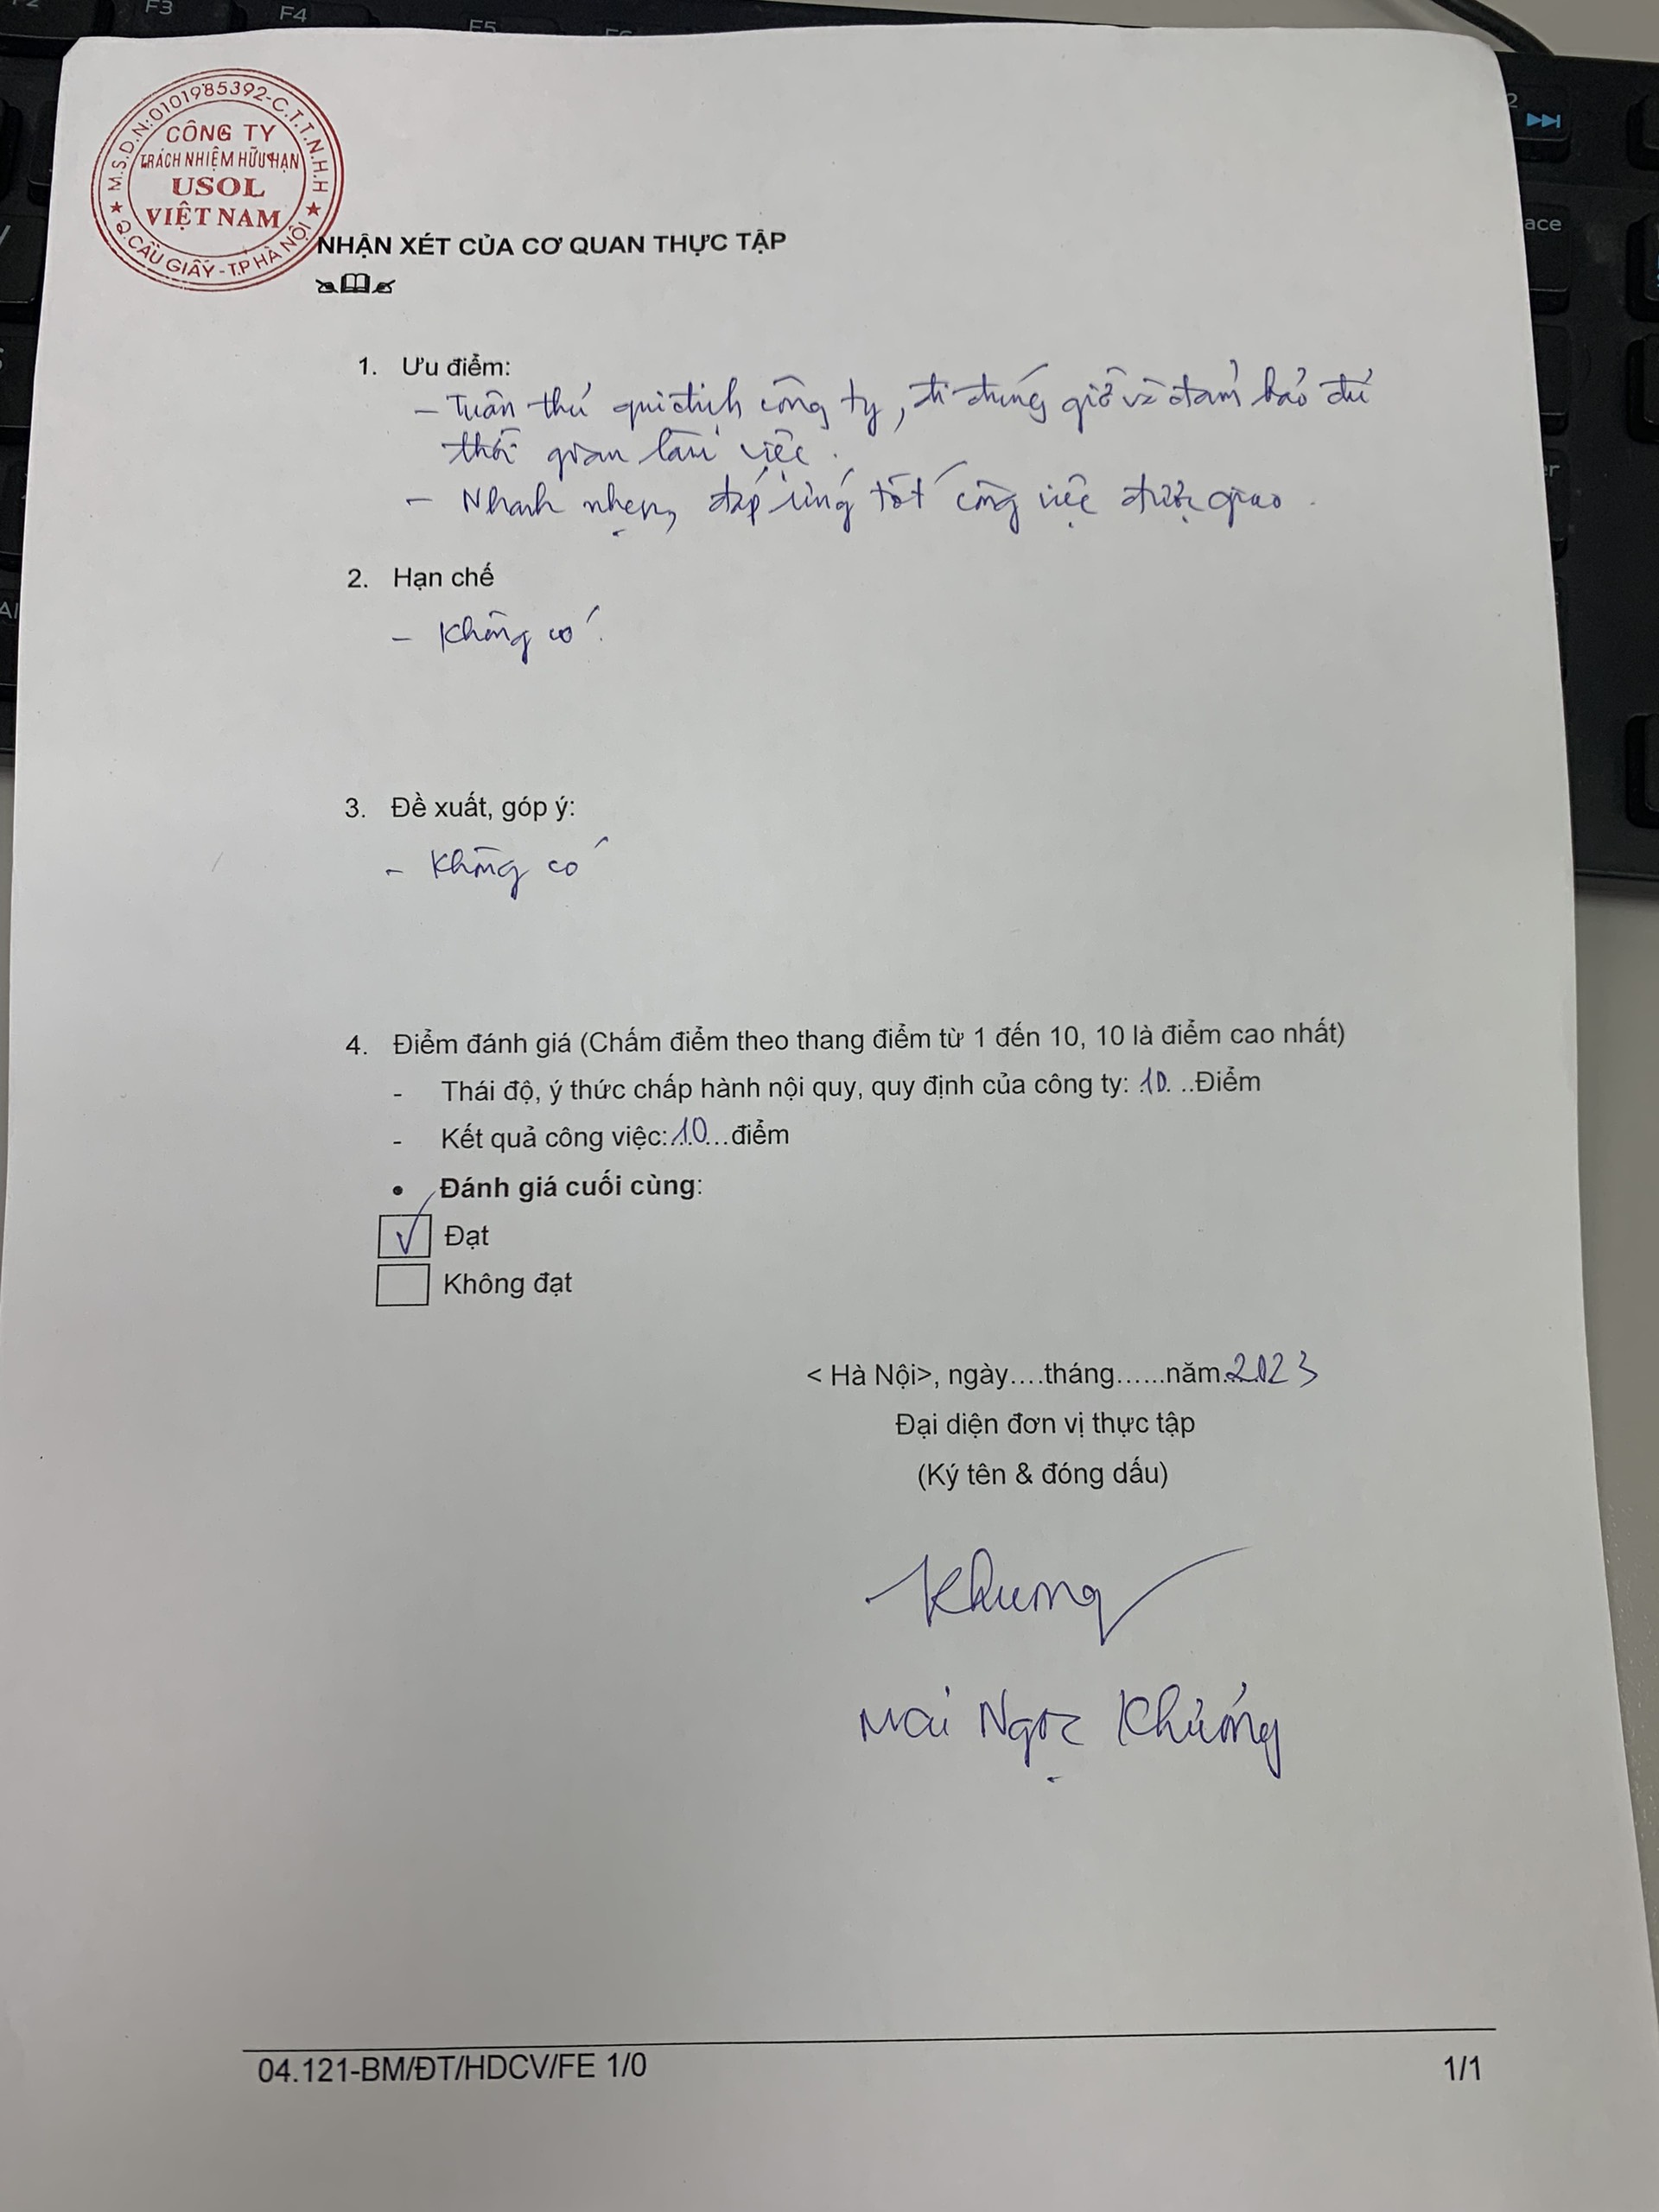 M.S.D.N:0101985392-C.T.T.N.H.H
CÔNG TY
TRÁCH NHIỆM HỮU HẠN
USOL
VIỆT NAM
Q.CẦU GIẤY - T.P HÀ NỘI
NHẬN XÉT CỦA CƠ QUAN THỰC TẬP
1. Ưu điểm:
- Tuân thủ qui định công ty, đi đúng giờ và đảm bảo đủ
thời gian làm việc.
- Nhanh nhẹn, đáp ứng tốt công việc được giao.
2. Hạn chế
- Không có.
3. Đề xuất, góp ý:
- Không có
4. Điểm đánh giá (Chấm điểm theo thang điểm từ 1 đến 10, 10 là điểm cao nhất)
- Thái độ, ý thức chấp hành nội quy, quy định của công ty: 10...Điểm
- Kết quả công việc:.10...điểm
• Đánh giá cuối cùng:
Đạt
Không đạt
< Hà Nội>, ngày....tháng......năm.2023
Đại diện đơn vị thực tập
(Ký tên & đóng dấu)
Khương
Mai Ngọc Khương
04.121-BM/ĐT/HDCV/FE 1/0 1/1
F3
F4
F5